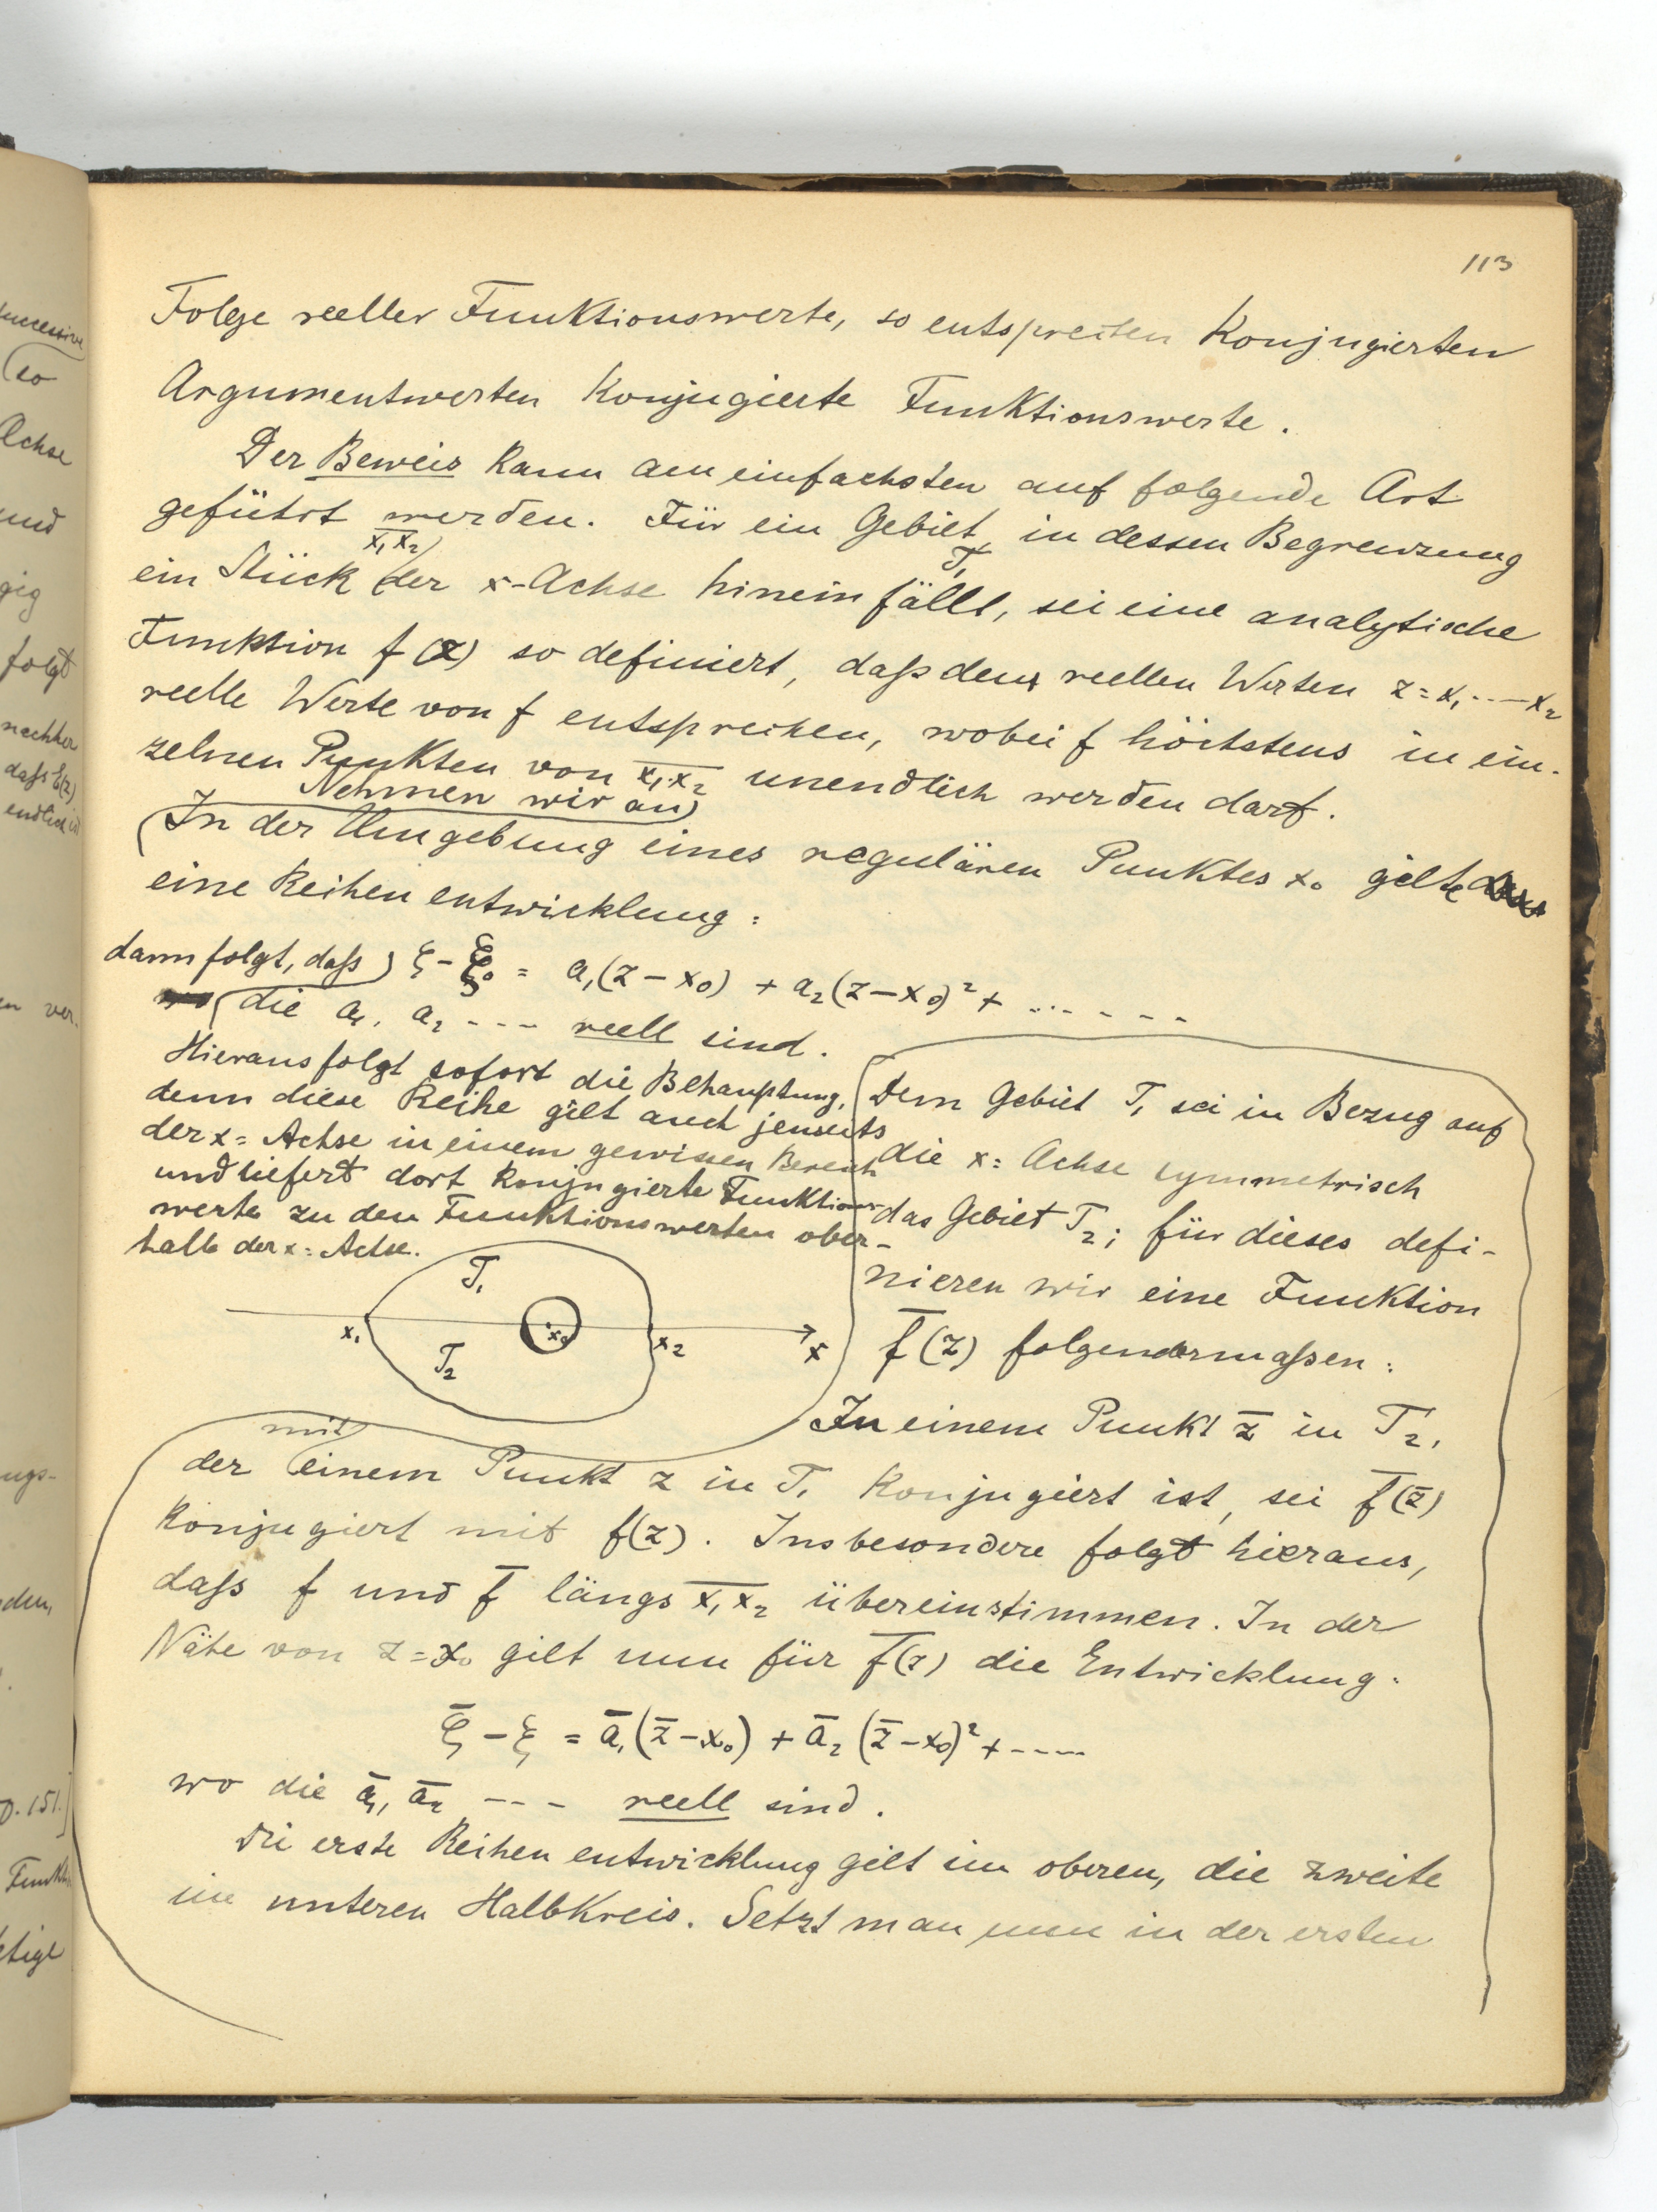 113
Folge reeller Funktionswerte, so entsprechen konjugierten
Argumentwerten konjugierte Funktionswerte.
Der Beweis kann am einfachsten auf folgende Art
geführt werden. Für ein Gebiet T₁, in dessen Begrenzung
ein Stück x̅₁x̅₂ der x-Achse hineinfällt, sei eine analytische
Funktion f(z) so definiert, daß den reellen Werten z = x₁ .... x₂
reelle Werte von f entsprechen, wobei f höchstens in ein-
zelnen Punkten von x̅₁x̅₂ unendlich werden darf.
Nehmen wir an
In der Umgebung eines regulären Punktes x₀ gelte
eine Reihenentwicklung:
dann folgt, daß ξ - ξ₀ = a₁(z - x₀) + a₂(z - x₀)² + ......
die a₁, a₂ --- reell sind.
Hieraus folgt sofort die Behauptung,
denn diese Reihe gilt auch jenseits
der x=Achse in einem gewissen Bereich
und liefert dort konjugierte Funktions-
werte zu den Funktionswerten ober-
halb der x=Achse.
T₁
x₁ x₀ x₂ x
T₂
Dem Gebiet T₁ sei in Bezug auf
die x=Achse symmetrisch
das Gebiet T₂; für dieses defi-
nieren wir eine Funktion
f̅(z) folgendermaßen:
In einem Punkt z̅ in T₂,
der mit einem Punkt z in T₁ konjugiert ist, sei f̅(z̅)
konjugiert mit f(z). Insbesondere folgt hieraus,
daß f und f̅ längs x̅₁x̅₂ übereinstimmen. In der
Nähe von z = x₀ gilt nun für f̅(z) die Entwicklung:
ξ̅ - ξ = a̅₁(z̅ - x₀) + a̅₂(z̅ - x₀)² + -----
wo die a̅₁, a̅₂ --- reell sind.
Die erste Reihenentwicklung gilt im oberen, die zweite
im unteren Halbkreis. Setzt man nun in der ersten
successive
so
Achse
und
gig
folgt
nachher
daß ξ(z)
endlich ist
en ver-
ungs-
den,
p. 151.]